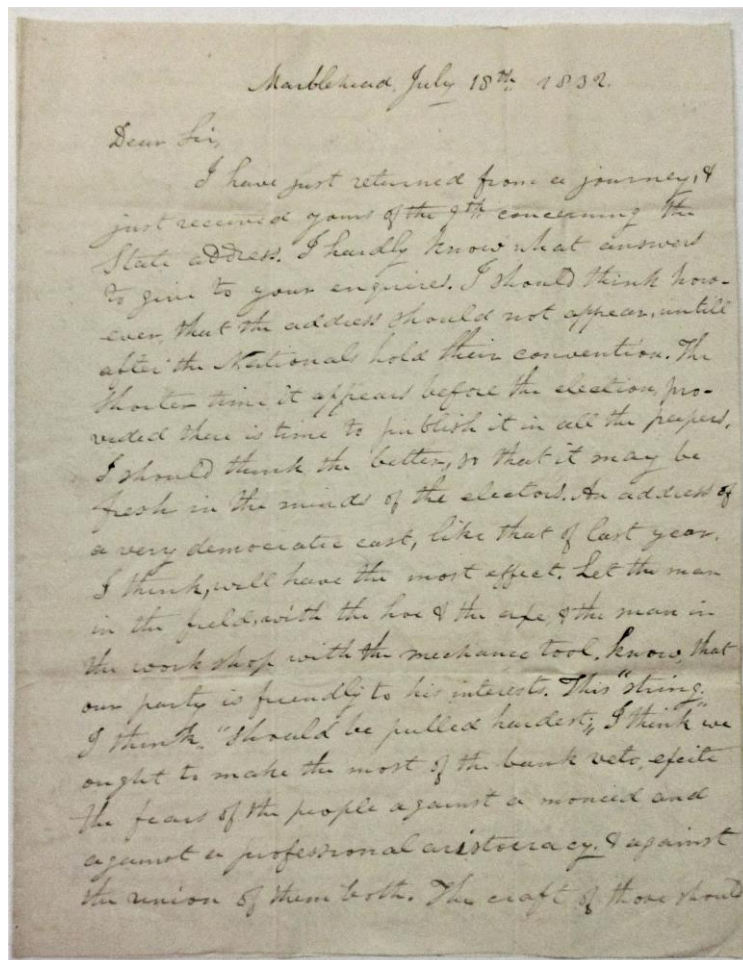 Marblehead, July 18th 1832.
Dear Sir,
I have just returned from a journey, &
just received yours of the 9th concerning the
State address. I hardly know what answers
to give to your enquires. I should think how-
ever, that the address should not appear, untill
after the Nationals hold their convention. The
shorter time it appears before the election, pro-
vided there is time to publish it in all the papers,
I should think the better, so that it may be
fresh in the minds of the electors. An address of
a very democratic cast, like that of last year,
I think, will have the most effect. Let the man
in the field, with the hoe & the axe, & the man in
the work shop with the mechanic tool, know, that
our party is friendly to his interests. This "string,
I think, "should be pulled hardest;" I think we
ought to make the most of the bank veto, excite
the fears of the people against a monied and
against a professional aristocracy, & against
the union of them both. The craft of those should